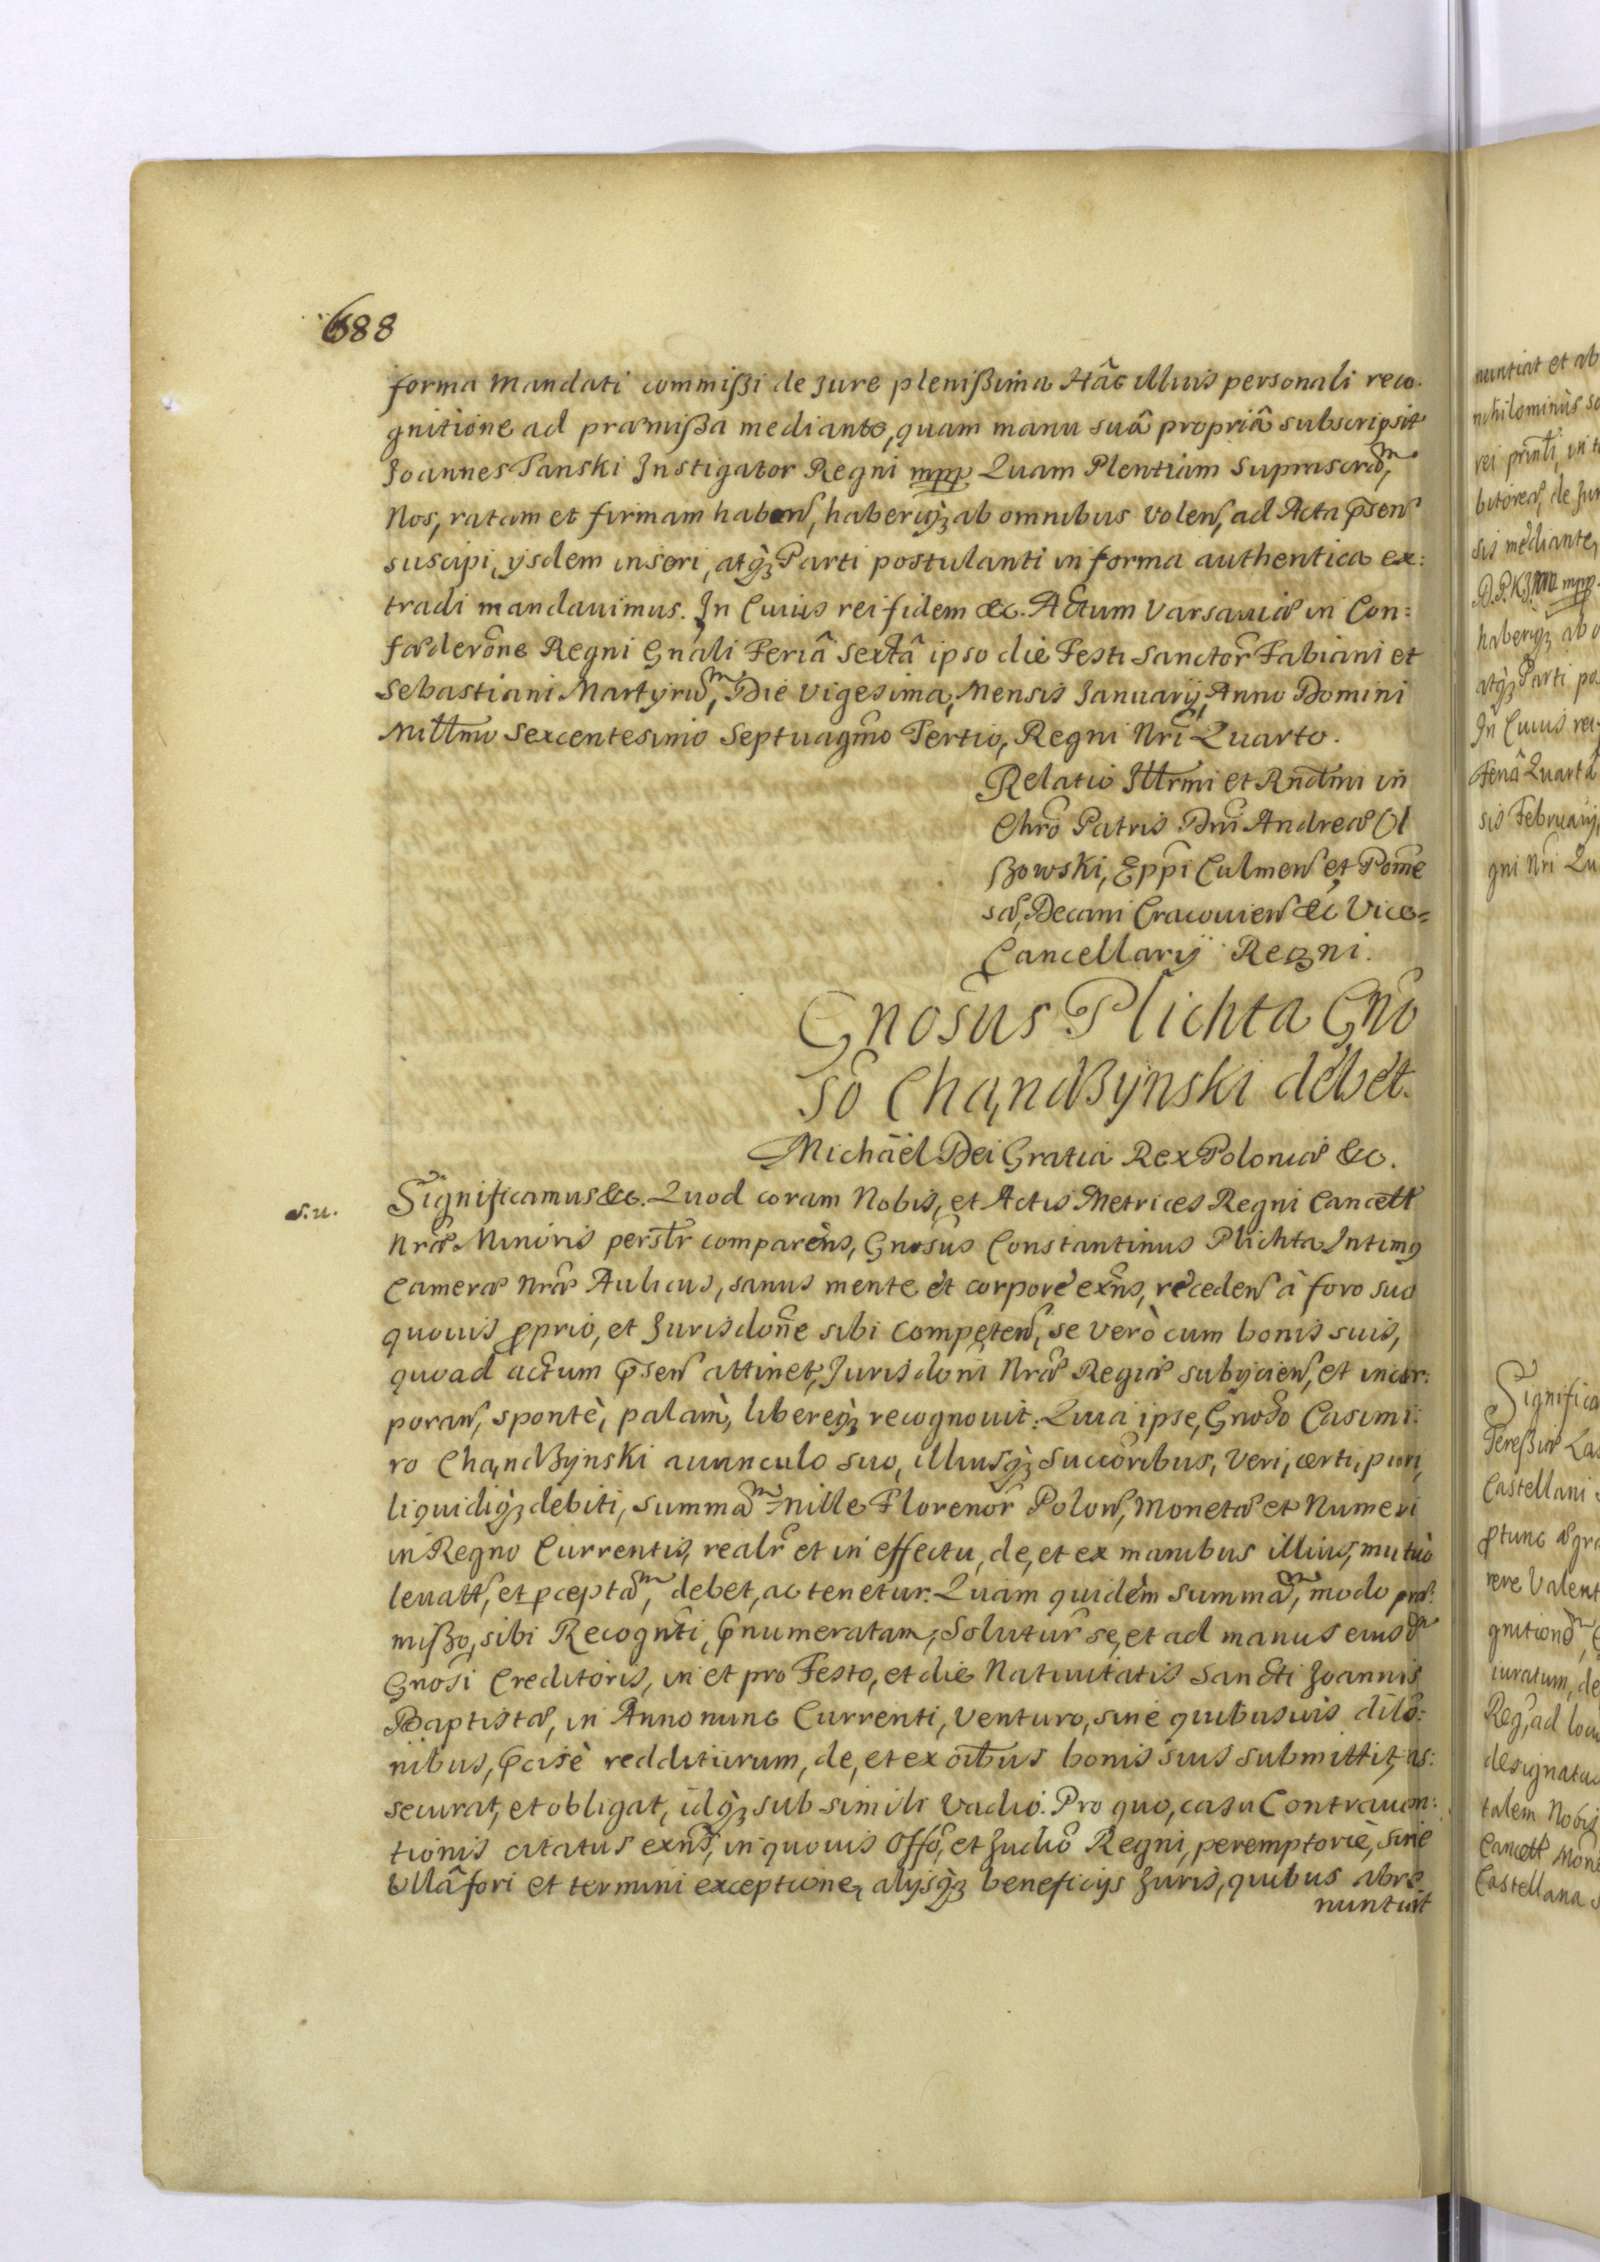 688
forma mandati commißi de Jure plenißima Hâc illius personali reco-
gnitione ad præmißa mediante, quam manu suâ propriâ subscripsit
Joannes Tanski Instigator Regni mpp Quam Plentiam suprascrãm,
Nos, ratam et firmam haben̄, haberiq̢ ab omnibus volen̄, ad Acta p̄sen̄
suscipi, ijsdem inseri, atq̢ Parti postulanti in forma authentica ex:
tradi mandavimus. In Cuius rei fidem &c. Actum Varsaviæ in Con:
fæderõne Regni Gnãli Feriâ Sextâ ipso die Festi Sanctor̃ Fabiani et
Sebastiani Martyrũm, Die Vigesima, Mensis Januarij, Anno Domini
Mill̃mo Sexcentesimo Septuagm̃o Tertio, Regni Nr̃i Quarto.
Relatio Ill̃rmi et Rnd̃mi in
Chr̃o Patris Dñi Andreæ Ol
ßowski, Epp̃i Culmen̄ et Pome
sæ, Decani Cracovien̄ &c Vice-
Cancellarij Regni.
Gnõsus Plichta Gnõ
sõ Cha̧ndzÿnski debet.
Michäel Dei Gratia Rex Poloniæ &c.
s.u.
Significamus &c. Quod coram Nobis, et Actis Metrices Regni Cancell̃
Nr̃æ Minoris persl̃r comparẽns, Gnõsus Constantinus Plichta Intimꝯ
Cameræ Nr̃æ Aulicus, sanus mente et corpore exñs, receden̄ â foro suo
quovis ꝓprio, et Jurisdoñe sibi competen̄, se verò cum bonis suis,
quoad actum p̄sen̄ attinet, Jurisdoñi Nr̃æ Regiæ subijcien̄, et incor:
poran̄, spontè, palam̀, libereq̢ recognovit: Quia ipse, Gnõso Casimi:
ro Cha̧ndzÿnski avunculo suo, illiusq̢ Succõribus, veri, certi, puri,
liquidiq̢ debiti, summãm mille Florenor̃ Polon̄, Monetæ et Numeri
in Regno Currentis, realr̃ et in effectu, de, et ex manibus illius, mutuò
levatt̄, et ꝑceptãm, debet, ac tenetur. Quam quidem summãm, modo præ:
mißo, sibi Recogn̄ti, p̄numeratam, Soluturr̃ se, et ad manus eiusdm
Gnõsi Creditoris, in et pro Festo, et die Nativitatis Sancti Joannis
Baptistæ, in Anno nunc Currenti, venturo, sine quibusvis dilõ:
nibus, p̄cisè redditurum, de, et ex oĩbus bonis suis submittit, as:
securat, et obligat, idq̢ sub simili vadio. Pro quo, casu Contraven:
tionis citatus exñs, in quovis Offõ, et Judiõ Regni, peremptoriè, sine
Ullâ fori et termini exceptione, alijsq̢ beneficijs Juris, quibus abre
nuntiat